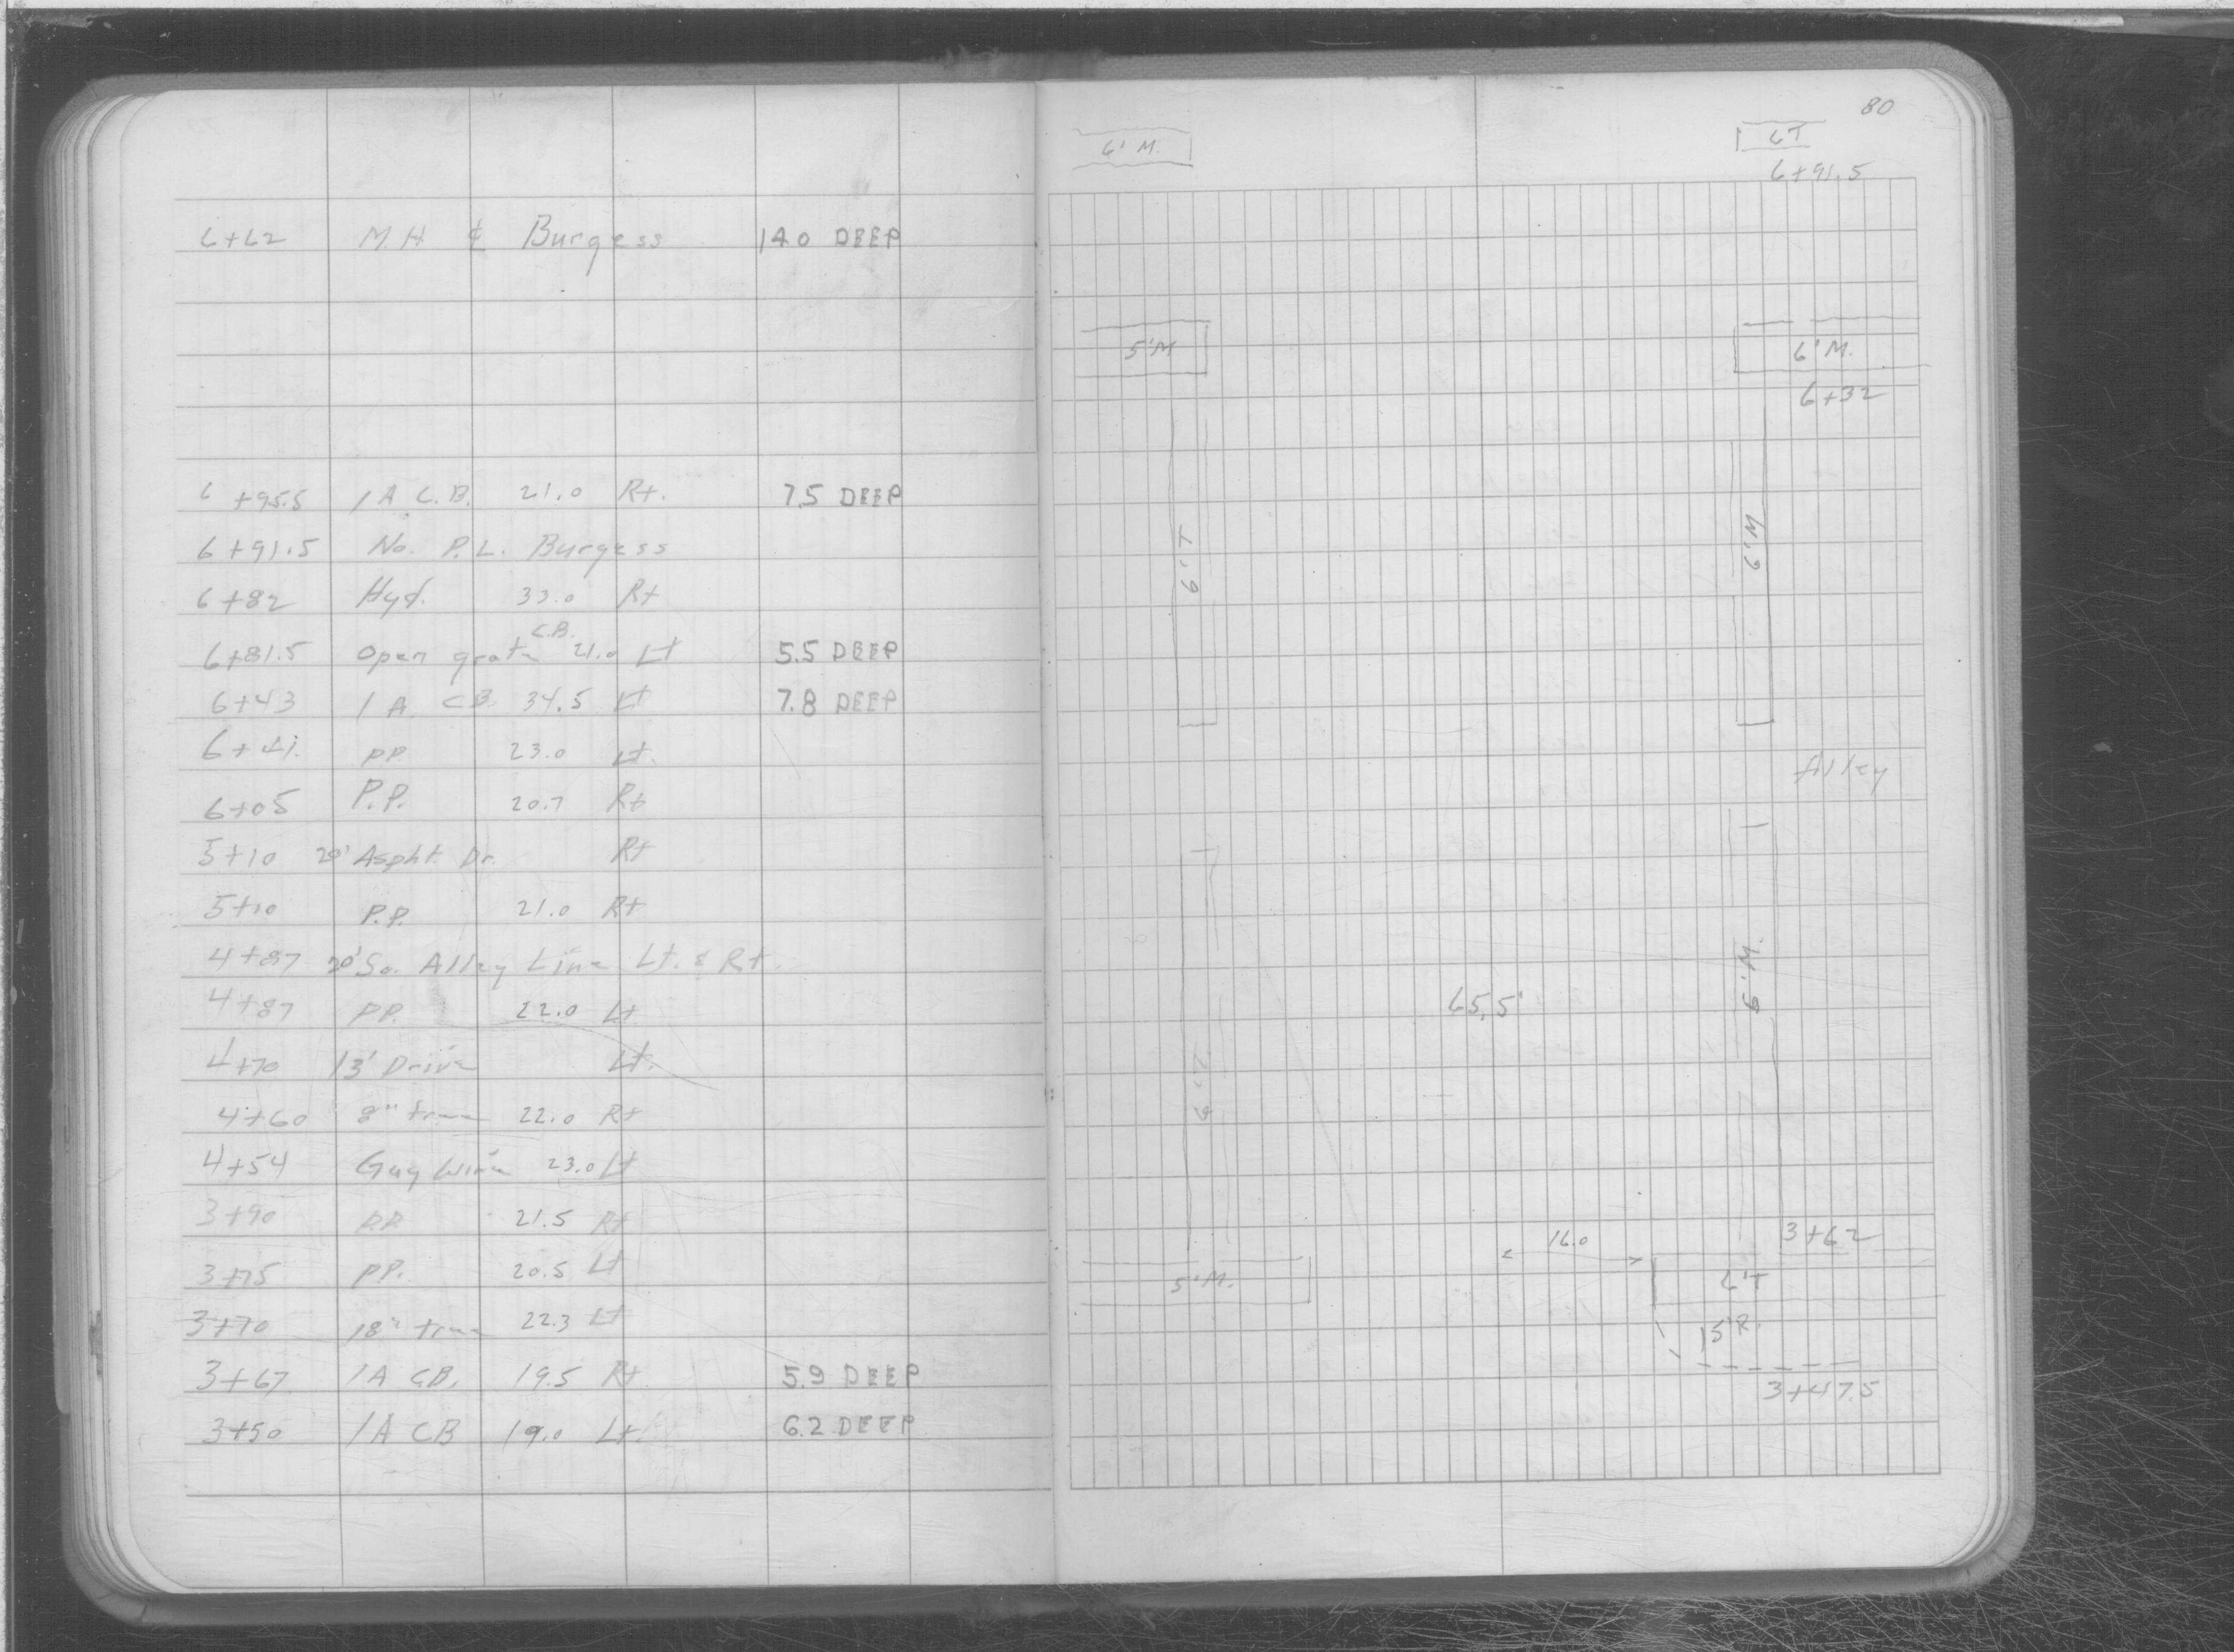 6+62 MH ¢ Burgess 14.0 DEEP
6+95.5 1A C.B. 21.0 Rt. 7.5 DEEP
6+91.5 No. P.L. Burgess
6+82 Hyd. 33.0 Rt
C.B.
6+81.5 Open grate 21.0 Lt 5.5 DEEP
6+43 1A CB. 34.5 Lt 7.8 DEEP
6+41 PP. 23.0 Lt.
6+05 P.P. 20.7 Rt
5+10 20' Aspht. Dr. Rt
5+10 P.P. 21.0 Rt
4+87 20' So. Alley Line Lt. & Rt.
4+87 PP. 22.0 Lt
4+70 13' Drive Lt.
4+60 8" tree 22.0 Rt
4+54 Guy Wire 23.0 Lt
3+90 P.P. 21.5 Rt
3+75 PP. 20.5 Lt
3+70 18" tree 22.3 Lt
3+67 1A C.B. 19.5 Rt 5.9 DEEP
3+50 1A CB 19.0 Lt. 6.2 DEEP
80
6' M.
6T
6+91.5
5'M
6'M.
6+32
6'T
6'M
Alley
6'M.
65.5'
6'T
3+62
16.0
5'M.
6'T
15'R.
3+47.5